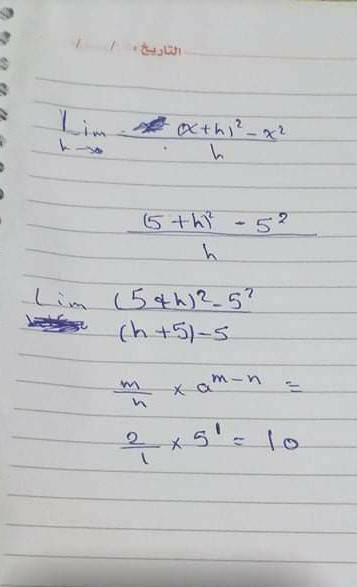 التاريخ: / /
Lim (x+h)² - x²
h→∞ h
(5+h)² - 5²
h
Lim (5+h)² - 5²
(h+5) - 5
m/n × a^(m-n) =
2/1 × 5¹ = 10